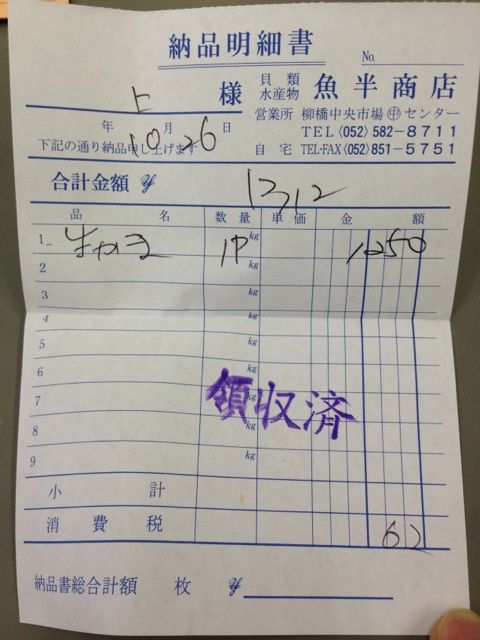 納品明細書
No.
上 様
貝類 水産物 魚半商店
営業所 柳橋中央市場㊥センター
TEL〈052〉582-8711
自宅 TEL-FAX〈052〉851-5751
年 10月26日
下記の通り納品申し上げます
合計金額 ¥ 1312
品名 数量 単価 金額
1 生カキ kg 1250
2 kg
3 kg
4 kg
5 kg
6 kg
7 kg
8 kg
9 kg
領収済
小計
消費税 62
納品書総合計額 枚 ¥